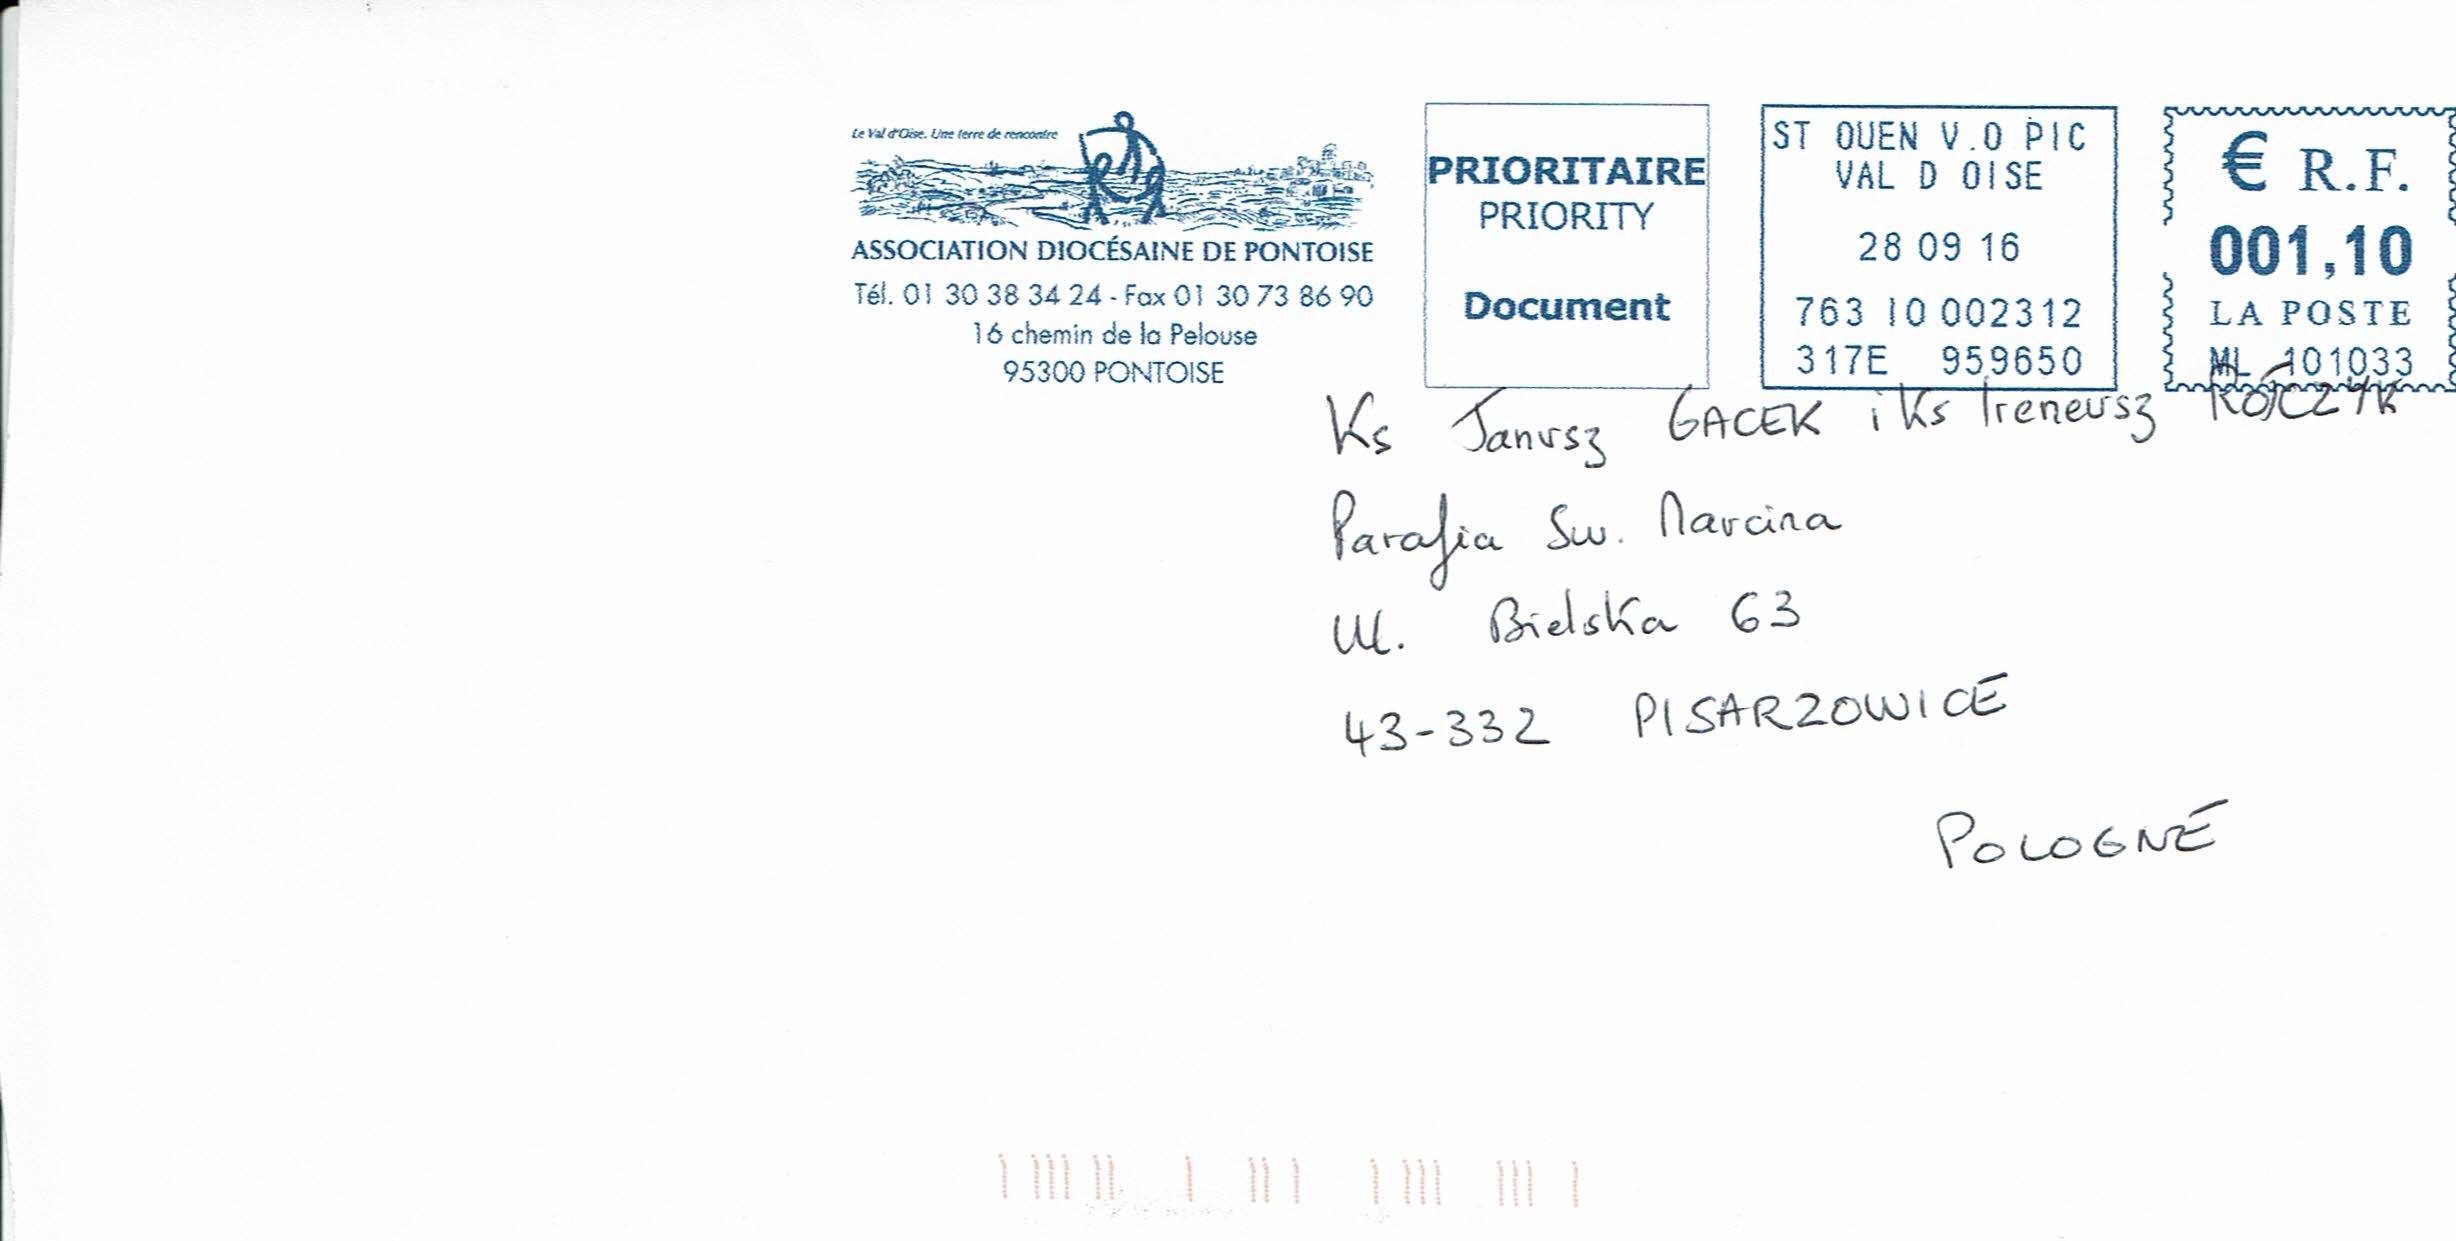 Le Val d'Oise. Une terre de rencontre
ASSOCIATION DIOCÉSAINE DE PONTOISE
Tél. 01 30 38 34 24 - Fax 01 30 73 86 90
16 chemin de la Pelouse
95300 PONTOISE
PRIORITAIRE
PRIORITY
Document
ST OUEN V.O PIC
VAL D OISE
28 09 16
763 IO 002312
317E 959650
€ R.F.
001,10
LA POSTE
ML 101033
Ks Janusz GACEK i Ks Ireneusz
Parafia Sw. Marcina
Ul. Bielska 63
43-332 PISARZOWICE
POLOGNE